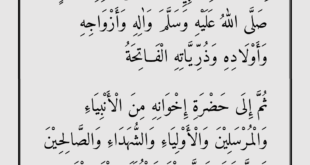 صَلَّى اللهُ عَلَيْهِ وَسَلَّمَ وَاٰلِهِ وَأَزْوَاجِهِ
وَأَوْلَادِهِ وَذُرِّيَّاتِهِ الْفَـاتِحَةُ
ثُمَّ إِلَى حَضْرَةِ إِخْوَانِهِ مِنَ الْأَنْبِيَاءِ
وَالْمُرْسَلِيْنَ وَالْأَوْلِيَاءِ وَالشُّهَدَاءِ وَالصَّالِحِيْنَ